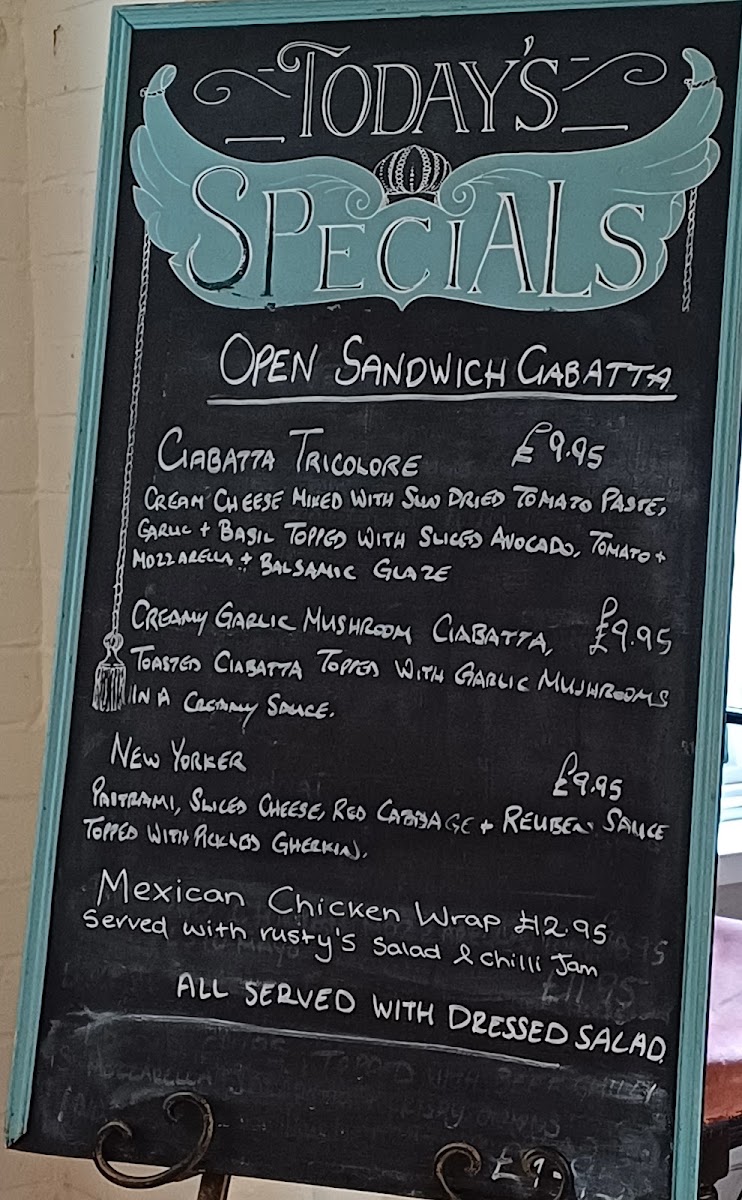 TODAY'S
SPECIALS
OPEN SANDWICH CIABATTA
CIABATTA TRICOLORE £9.95
CREAM CHEESE MIXED WITH SUN DRIED TOMATO PASTE,
GARLIC + BASIL TOPPED WITH SLICED AVOCADO, TOMATO +
MOZZARELLA + BALSAMIC GLAZE
CREAMY GARLIC MUSHROOM CIABATTA, £9.95
TOASTED CIABATTA TOPPED WITH GARLIC MUSHROOMS
IN A CREAMY SAUCE.
NEW YORKER £9.95
PASTRAMI, SLICED CHEESE, RED CABBAGE + REUBEN SAUCE
TOPPED WITH PICKLED GHERKIN.
Mexican Chicken Wrap £12.95
Served with rusty's salad & chilli Jam
ALL SERVED WITH DRESSED SALAD.